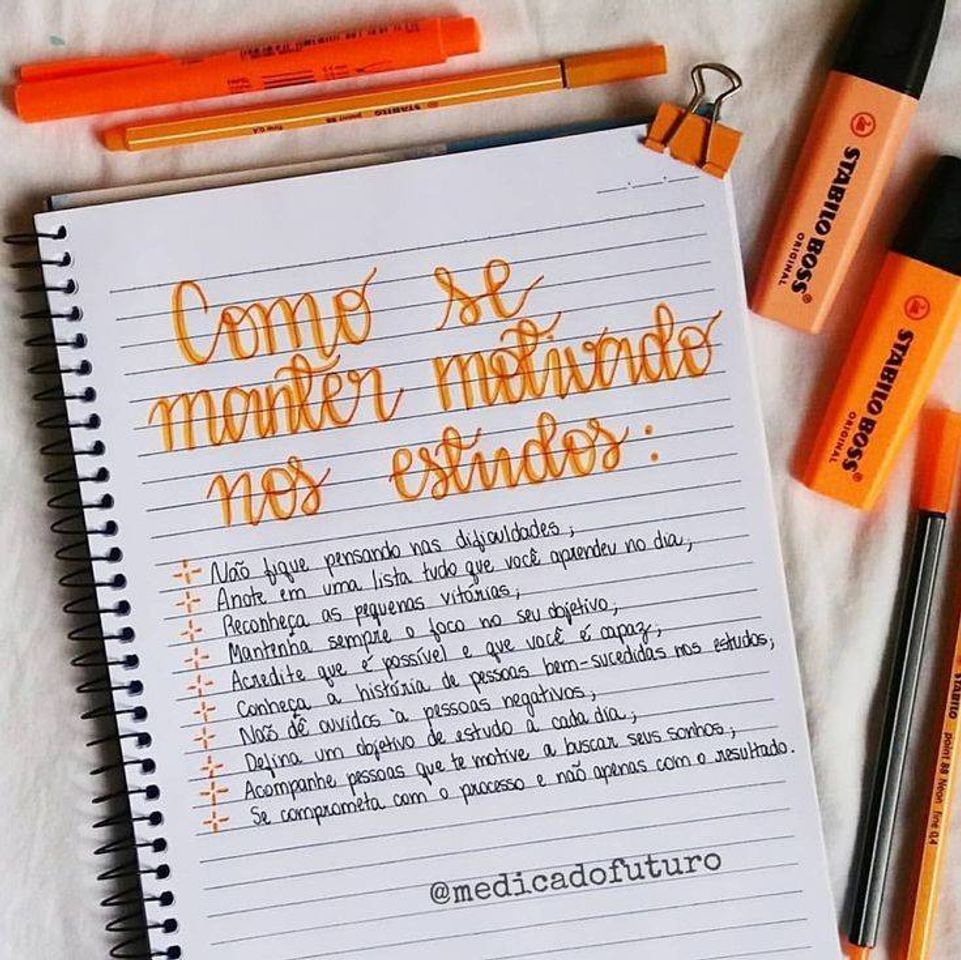 Como se
manter motivado
nos estudos:
Não fique pensando nas dificuldades;
Anote em uma lista tudo que você aprendeu no dia;
Reconheça as pequenas vitórias;
Mantenha sempre o foco no seu objetivo;
Acredite que é possível e que você é capaz;
Conheça a história de pessoas bem-sucedidas nos estudos;
Não dê ouvidos à pessoas negativas;
Defina um objetivo de estudo a cada dia;
Acompanhe pessoas que te motive a buscar seus sonhos;
Se comprometa com o processo e não apenas com o resultado.
@medicadofuturo
STABILO point 88 fine 0,4
STABILO BOSS®
ORIGINAL
STABILO BOSS®
ORIGINAL
STABILO point 88 Neon fine 0,4